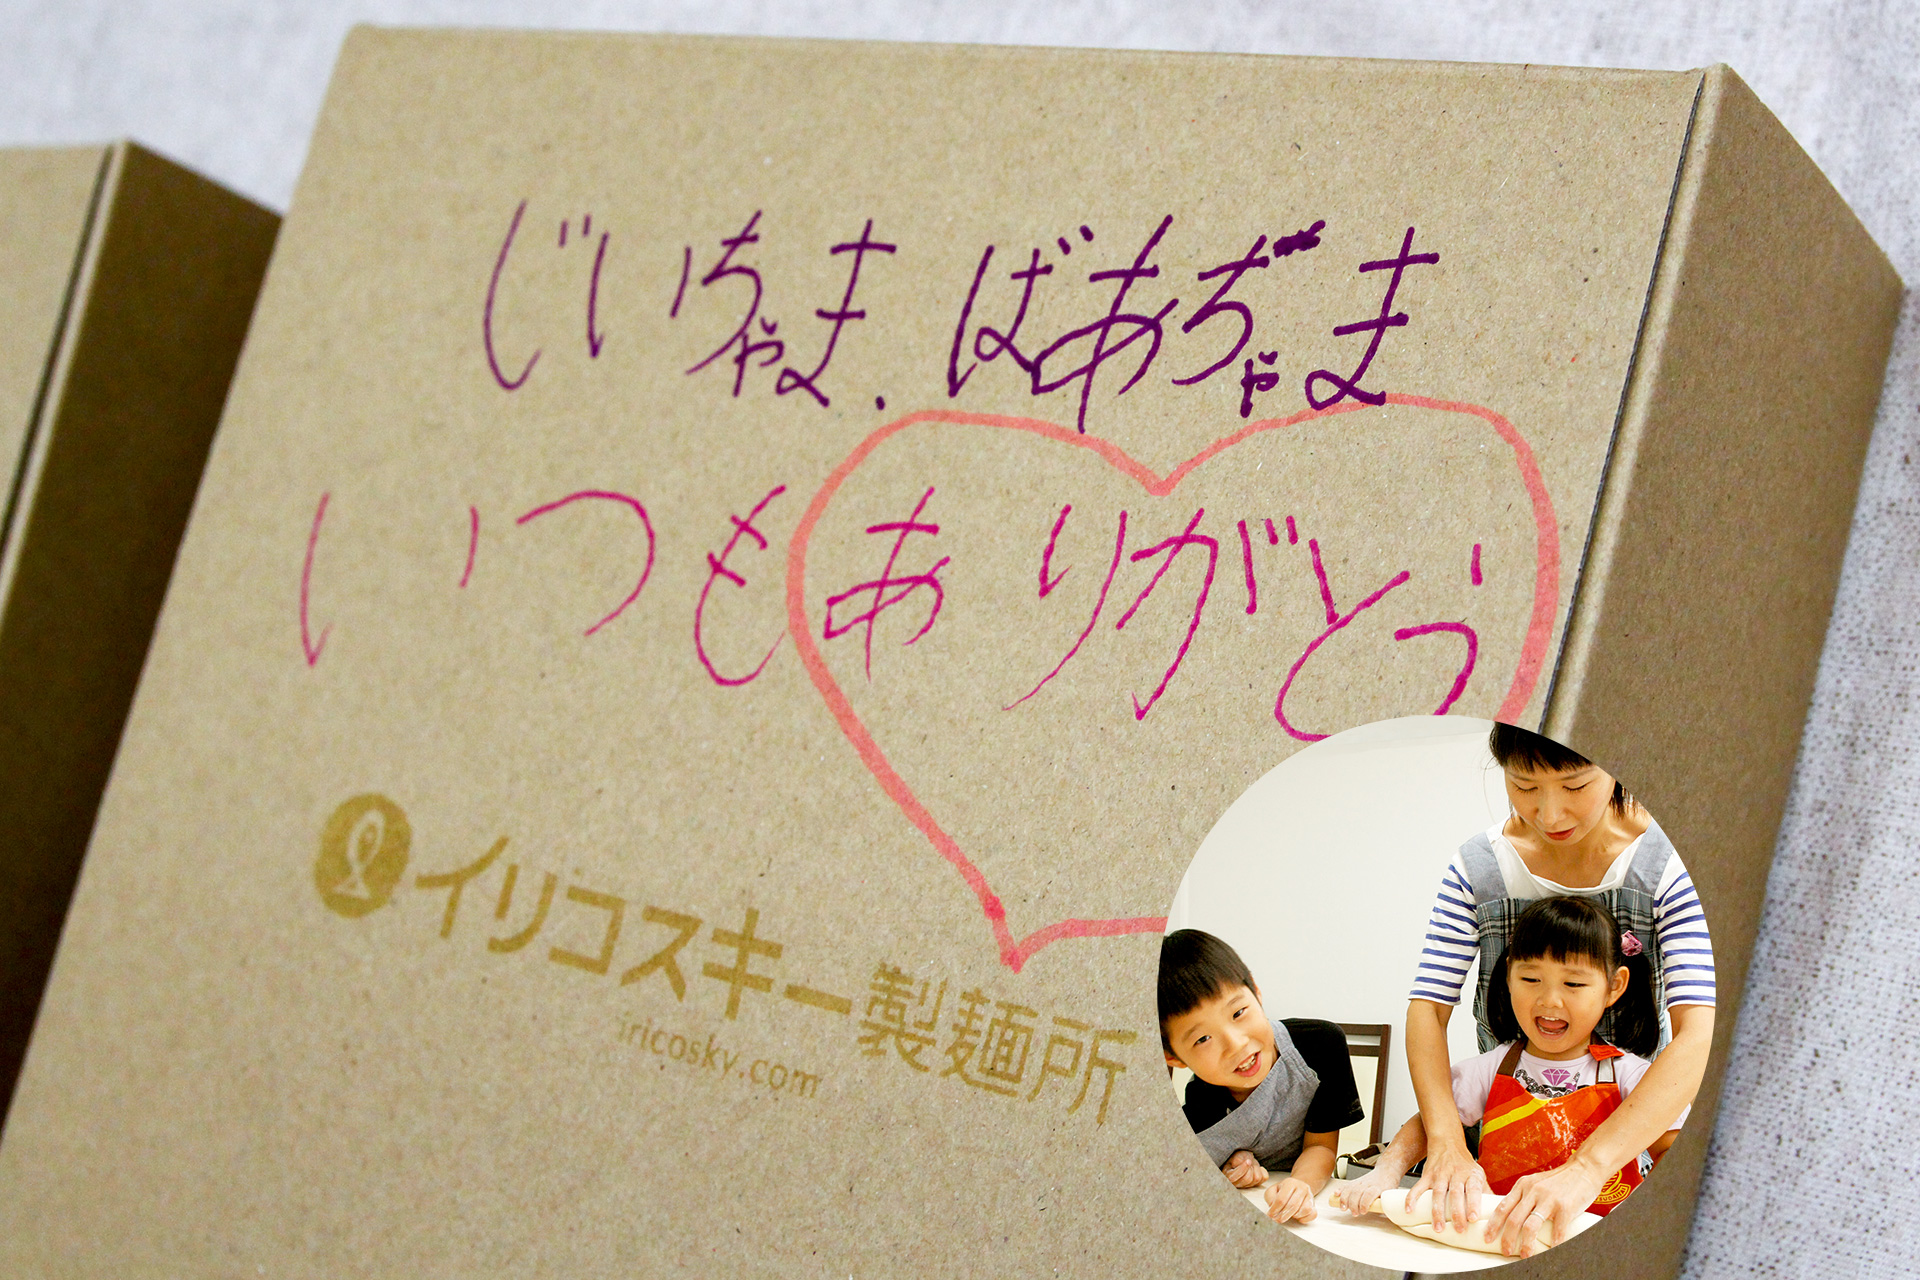 じいちゃま.ばあちゃま
いつもありがとう
イリコスキー製麺所
iricosky.com